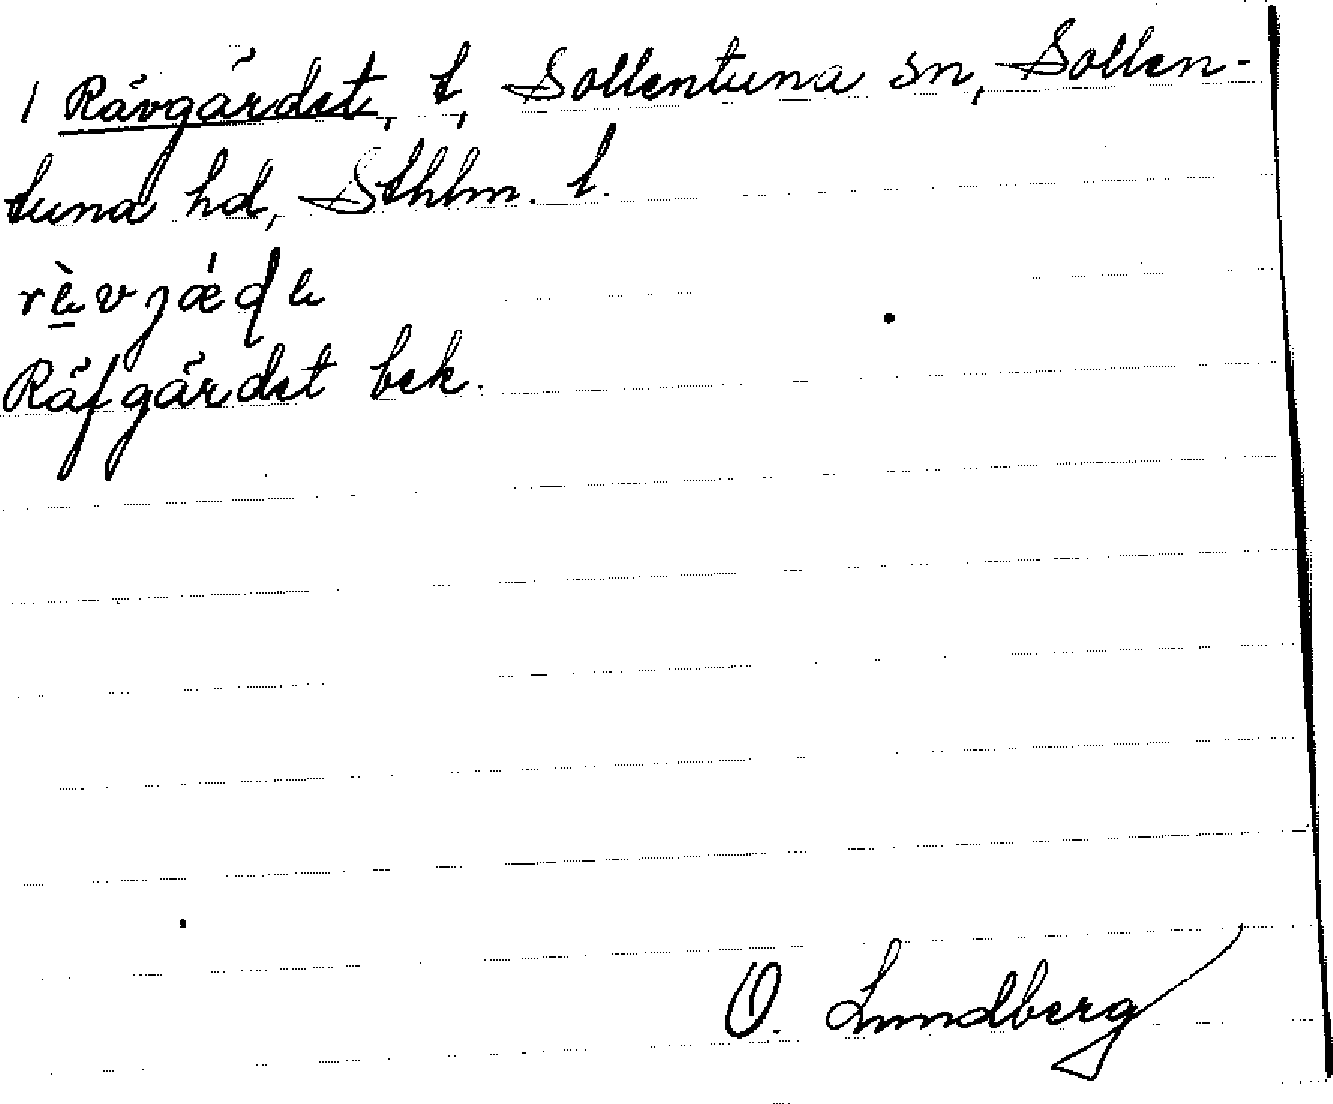 1 Rävgärdet, t, Sollentuna sn, Sollen-
tuna hd, Sthlm. l.
Räfgärdet bek.
O. Lundberg